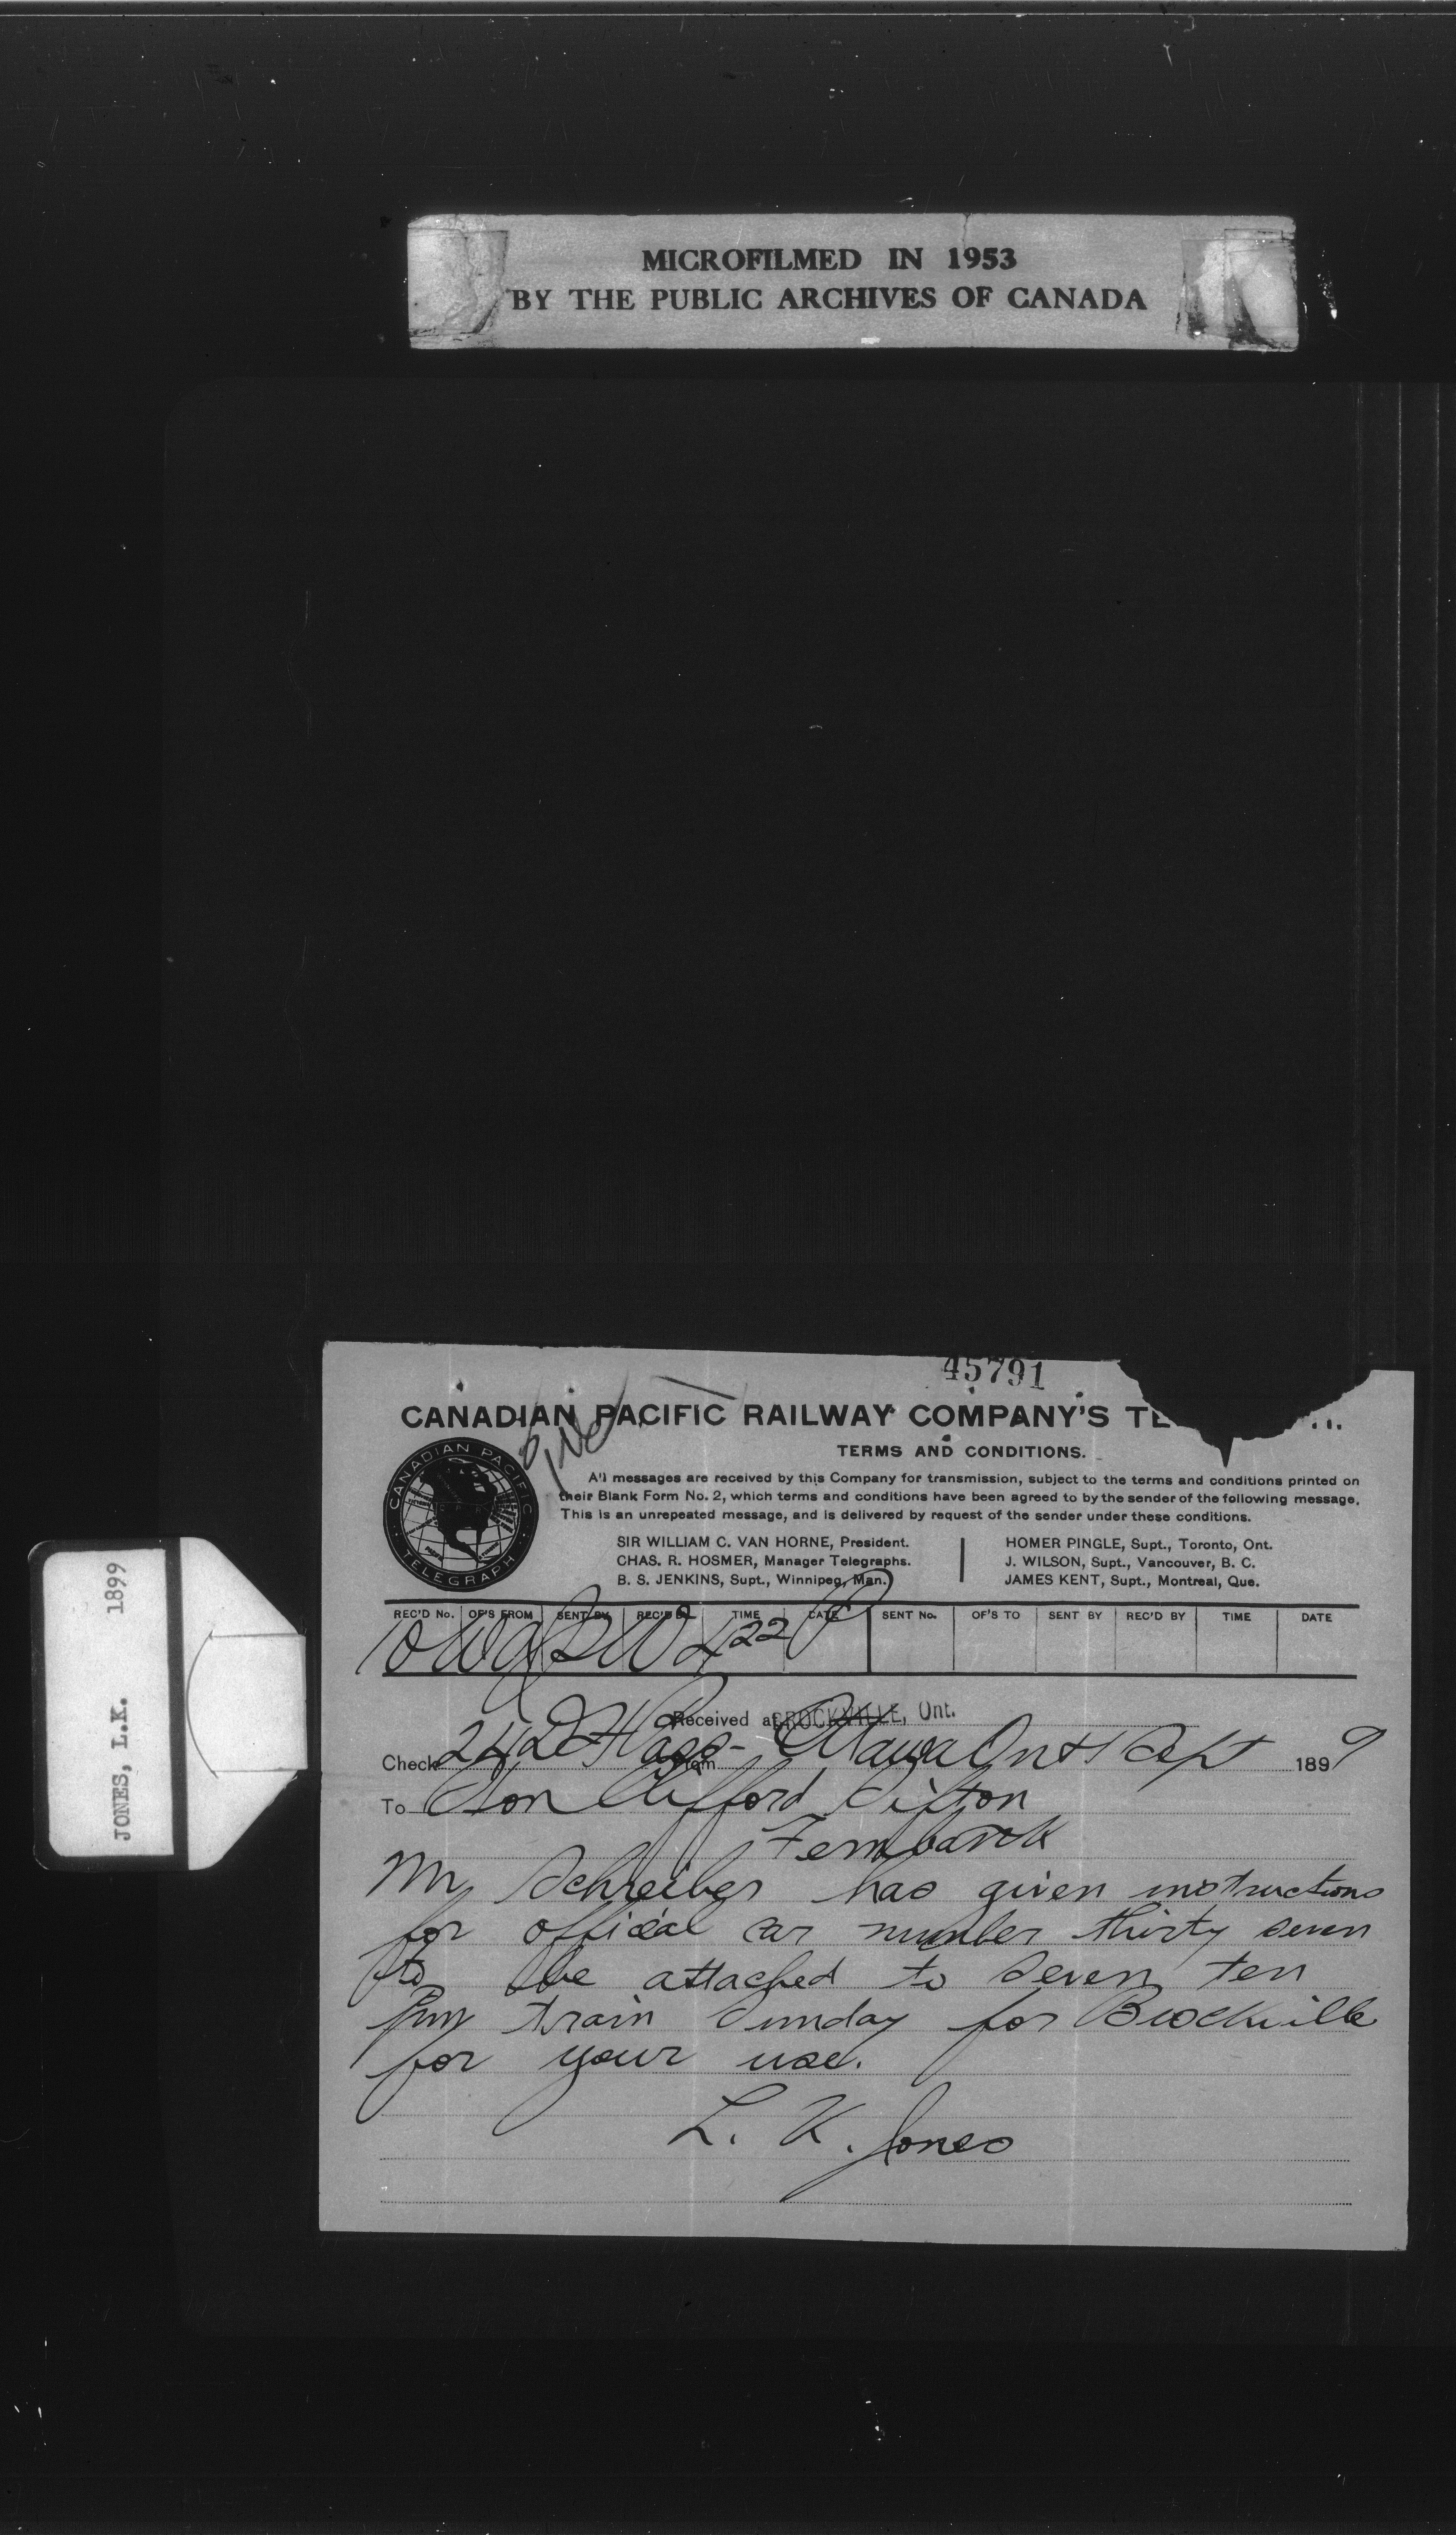 MICROFILMED IN 1953
BY THE PUBLIC ARCHIVES OF CANADA
JONES, L.K. 1899
45791
CANADIAN PACIFIC RAILWAY COMPANY'S TE
TERMS AND CONDITIONS.
CANADIAN PACIFIC
TELEGRAPH
All messages are received by this Company for transmission, subject to the terms and conditions printed on
their Blank Form No. 2, which terms and conditions have been agreed to by the sender of the following message.
This is an unrepeated message, and is delivered by request of the sender under these conditions.
SIR WILLIAM C. VAN HORNE, President.
CHAS. R. HOSMER, Manager Telegraphs.
B. S. JENKINS, Supt., Winnipeg, Man.
HOMER PINGLE, Supt., Toronto, Ont.
J. WILSON, Supt., Vancouver, B. C.
JAMES KENT, Supt., Montreal, Que.
REC'D No. OF'S FROM SENT BY REC'D BY TIME DATE SENT No. OF'S TO SENT BY REC'D BY TIME DATE
422 P
Received at BROCKVILLE, Ont.
Check From Ottawa Ont 1 Sept 1899
To Hon Clifford Sifton
Fernbank
Mr Schreiber has given instructions
for official car number thirty seven
to be attached to seven ten
pm train Sunday for Brockville
for your use.
L. K. Jones